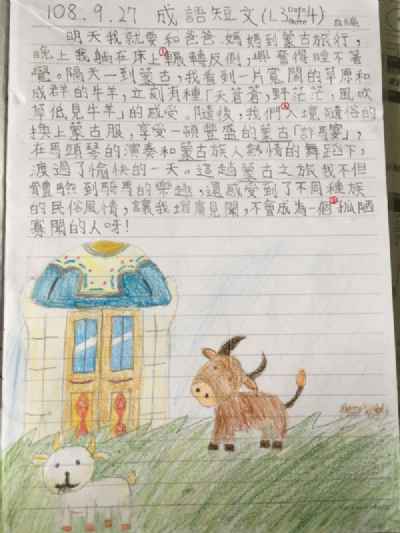 108.9.27 成語短文(L3 4)
明天我就要和爸爸、媽媽到蒙古旅行,
晚上我躺在床上①輾轉反側,興奮得睡不著
覺。隔天一到蒙古,我看到一片寬闊的草原和
成群的牛羊,立刻有種「天蒼蒼,野茫茫,風吹
草低見牛羊」的感受。隨後,我們入境隨俗的
換上蒙古服,享受一頓豐盛的蒙古「詐馬宴」,
在馬頭琴的演奏和蒙古族人熱情的舞蹈下,
渡過了愉快的一天。這趟蒙古之旅我不但
體驗到騎馬的樂趣,還感受到了不同種族
的民俗風情,讓我增廣見聞,不會成為一個孤陋
寡聞的人呀!